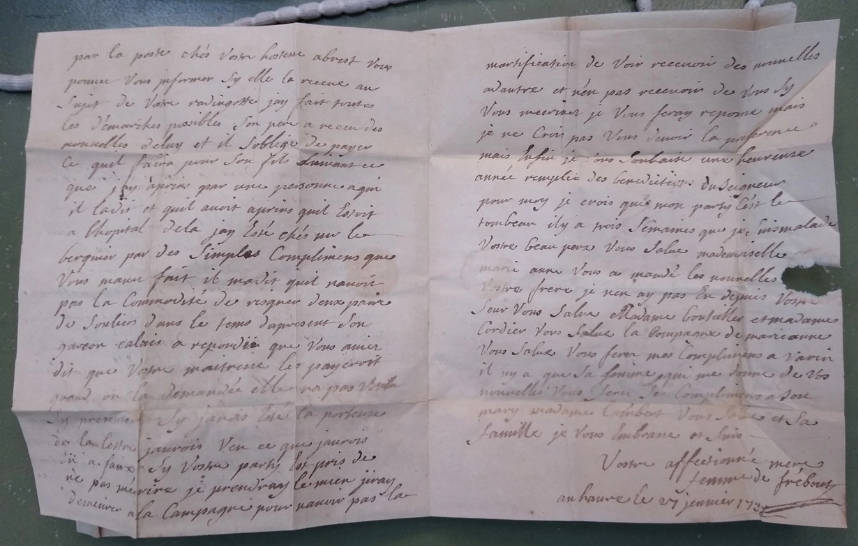 par la poste chés Vostre hostesse abrest vous
pouvez Vous informer Sy elle la receue au
Sujet de Votre redingotte jay fait toutes
les démarches possibles Son pere a receu des
nouvelles deluy et il Soblige de payer
Ce quil faira pour Son fils Suivant ce
que jay apris par une personne aqui
il ladit et quil avoit apris quil Estoit
a lhopital dela jay Esté chés mr le
berguier par des Simples Complimens que
Vous maves fait il madit quil navoit
pas la Commodité de risquer deux paire
de Souliers dans le tems dapresent Son
garcon calais a repondu que Vous aviez
dit que Votre maitresse les payeroit
quand on la demandée elle na pas Voulu
Sy javois Esté la porteuse
de la lettre jaurois Veu ce que jaurois
Sy Vostre party Est pris de
ne pas mécrire je prendray le mien jiray
demeurer ala Campagne pour navoir pas la
mortification de Voir recevoir des nouvelles
adautre et nen pas recevoir de Vous Sy
Vous mecrivez je Vous feray reponse mais
je ne Crois pas Vous devoir la preference
mais Enfin je Vous Souhaite une heureuse
année remplie des benedictions du Seigneur
pour moy je crois que mon party Est le
tombeau il y a trois Semaines que je Suis malade
Vostre beau pere Vous Salue mademoiselle
marie anne Vous a mandé les nouvelles
Vostre frere je nen ay pas Eu depuis Vostre
Seur Vous Salue Madame et madame
Cordier Vous Salue la Compagne de marieanne
Vous Salue Vous ferez mes Complimens a Varin
il ny a que Sa femme qui me donne de Vos
nouvelles Vous ferez Ses Complimens a Son
mary madame Lambert Vous Salue et Sa
famille je Vous Embrasse et Suis
Vostre affectionné mere
femme de frebourg
au havre le 27 janvier